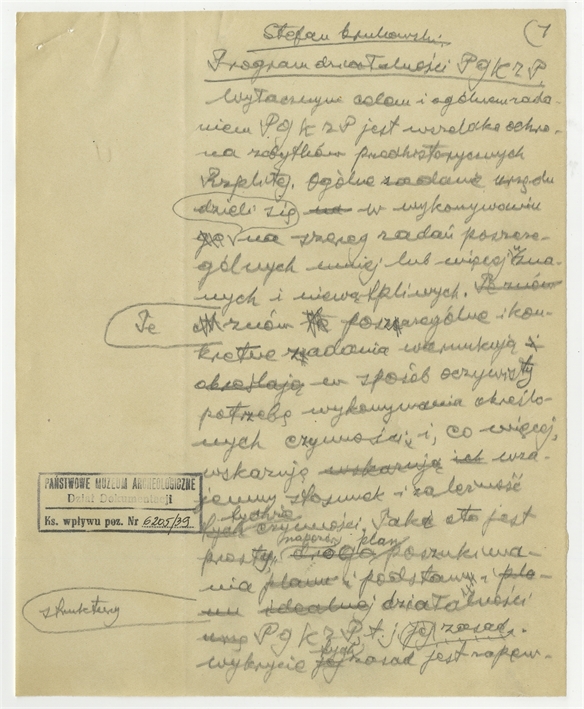 (1
Stefan Krukowski.
Program działalności PGKZP
Wyłącznym celem i ogólnem zada-
niem PGKZP jest wszelka ochro-
na zabytków przedhistorycznych
Rzplitej. Ogólne zadanie urzędu
dzieli się na w wykonywaniu
na szereg zadań poszcze-
gólnych mniej lub więcej zna-
nych i niewątpliwych. Te znów
Te znów poszczególne i kon-
kretne zadania warunkują i
określają w sposób oczywisty
potrzebę wykonywania określo-
nych czynności, i, co więcej,
wskazują wskazują ich wza-
jemny stosunek i zależność
tychże
tych czynności. Taka oto jest
naprzód plan
prosta droga poszukiwa-
nia planu i podstawy, i pla-
struktury
nu idealnej działalności
PGKZP t.j. jej zasad.
tych
Wykrycie jej zasad jest zapew-
PAŃSTWOWE MUZEUM ARCHEOLOGICZNE
Dział Dokumentacji
Ks. wpływu poz. Nr 6205/39